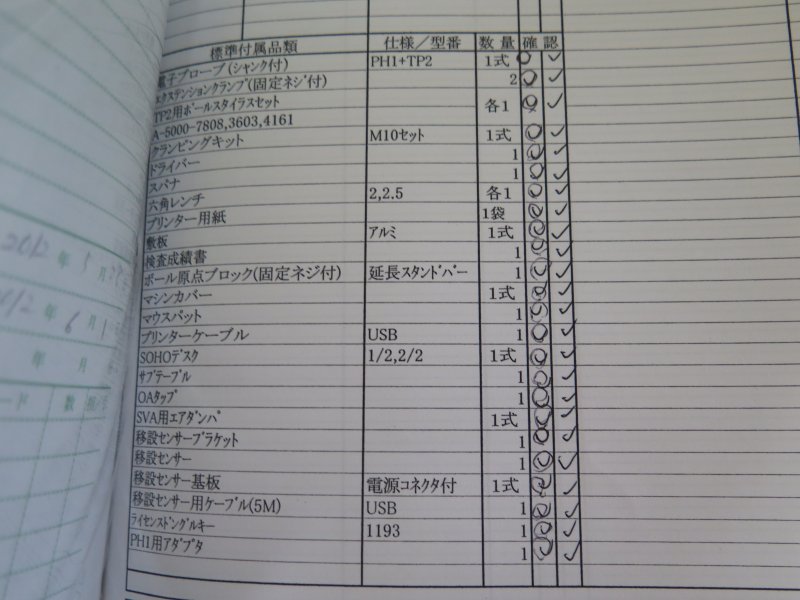 標準付属品類 仕様/型番 数量 確認
電子プローブ(シャンク付) PH1+TP2 1式
エクステンションクランプ(固定ネジ付) 2
TP2用ボールスタイラスセット 各1
A-5000-7808,3603,4161
クランピングキット M10セット 1式
ドライバー 1
スパナ 1
六角レンチ 2,2.5 各1
プリンター用紙 1袋
敷板 アルミ 1式
検査成績書 1
ボール原点ブロック(固定ネジ付) 延長スタンドバー 1
マシンカバー 1式
マウスパット 1
プリンターケーブル USB 1
SOHOデスク 1/2,2/2 1式
サブテーブル 1
OAタップ 1
SVA用エアダンパ 1式
移設センサーブラケット 1
移設センサー 1
移設センサー基板 電源コネクタ付 1式
移設センサー用ケーブル(5M) USB 1
ライセンスドングルキー 1193 1
PH1用アダプタ 1
2012年5月
年6月1
年 月
ード 数